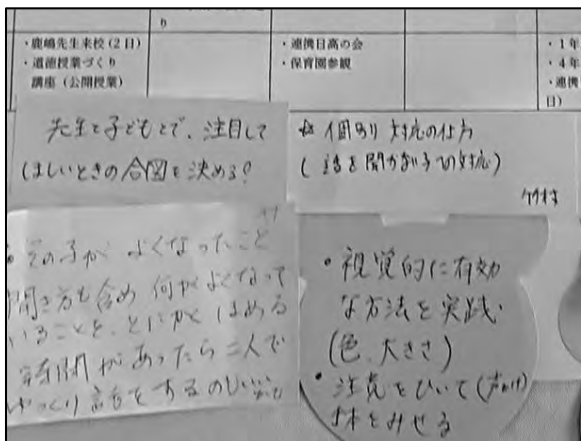 り
・鹿嶋先生来校(2日)
・道徳授業づくり
講座(公開授業)
・連携日高の会
・保育園参観
・1年
・4年
・連携
日)
先生と子どもとで、注目して
ほしいときの合図を決める?
個別対応の仕方
(話を聞かない子への対応)
その子が よくなったこと
聞き方も含め 何がよくなって
いることを、とにかく ほめる
時間があったら二人で
ゆっくり話をするのもいい
・視覚的に有効
な方法を実践
(色、大きさ)
・注意をひいて(声かけ)
をみせる